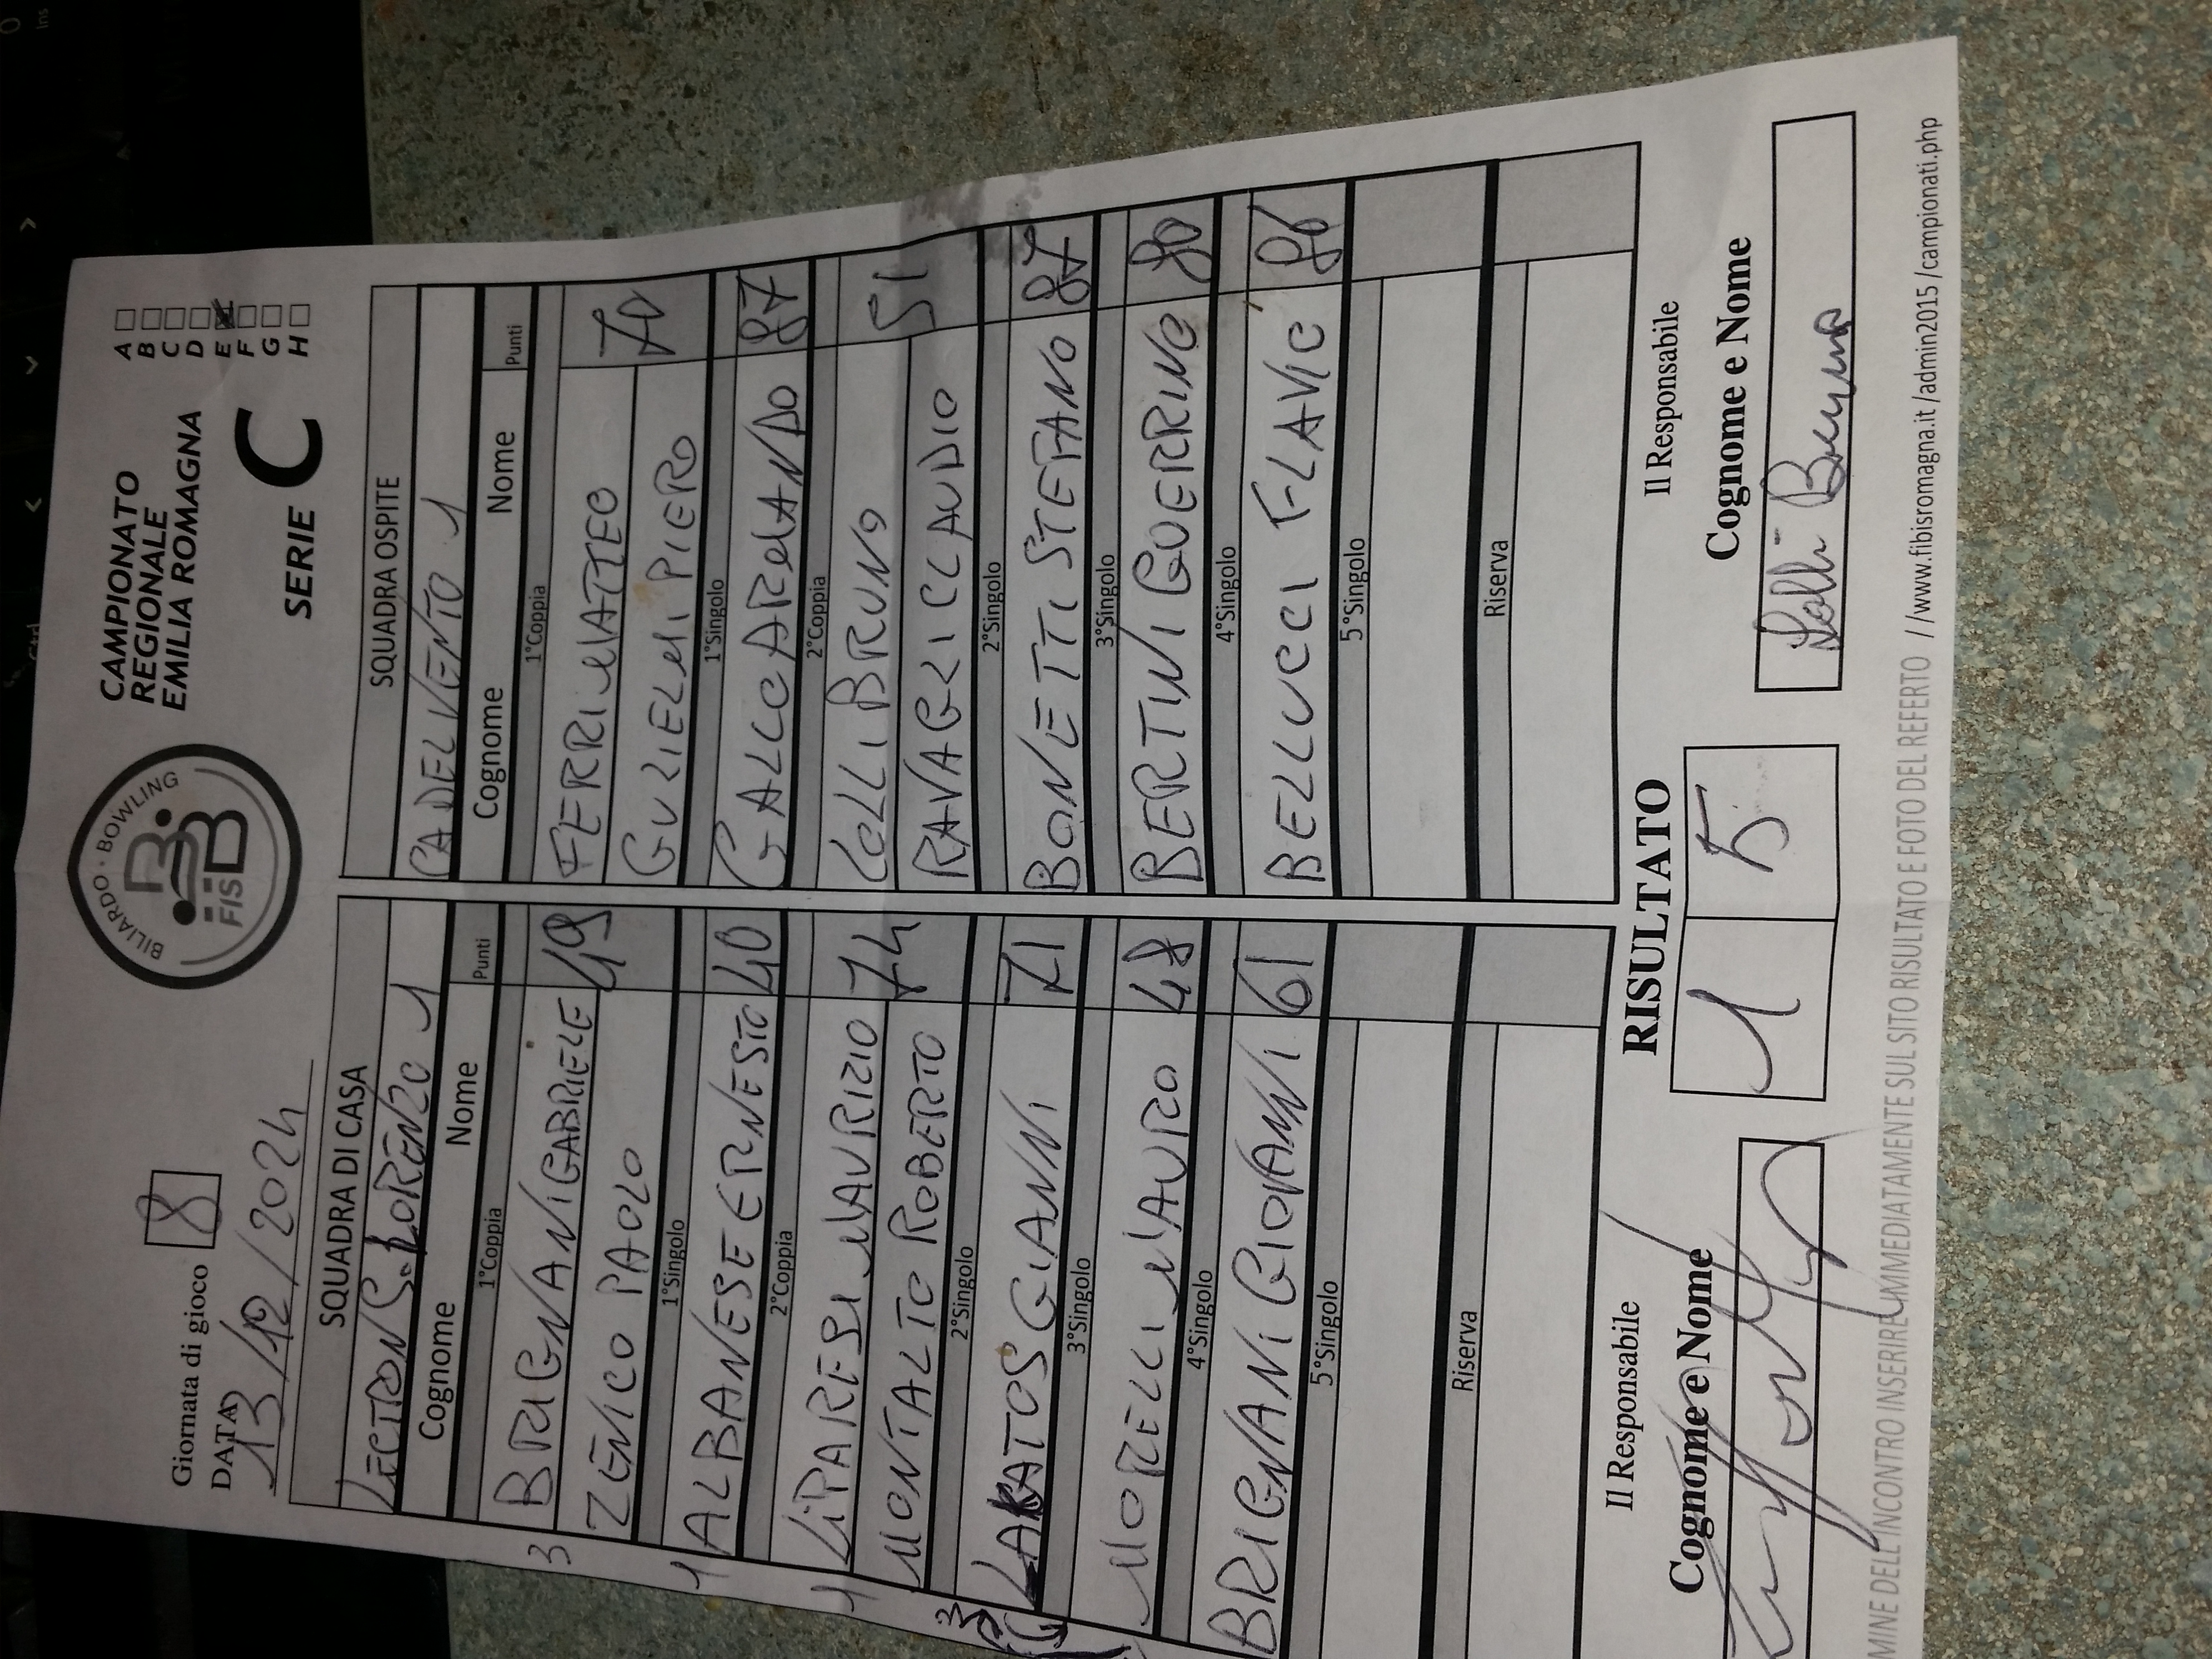 Giornata di gioco 8
DATA 13/12/2024
BILIARDO · BOWLING
FISBB
CAMPIONATO
REGIONALE
EMILIA ROMAGNA
SERIE C
A
B
C
D
E
F
G
H
SQUADRA DI CASA
S. LORENZO 1
Cognome Nome Punti
1°Coppia
BRIGNANI GABRIELE 49
ZENICO PAOLO
1°Singolo
ALBANESE ERNESTO 40
2°Coppia
LIPARESI MAURIZIO 74
MONTALTO ROBERTO
2°Singolo
LAKATOS GIANNI 71
3°Singolo
MORELLI MAURO 48
4°Singolo
BRIGNANI GIOVANNI 61
5°Singolo
Riserva
SQUADRA OSPITE
CA DEL VENTO 1
Cognome Nome Punti
1°Coppia
FERRI MATTEO 70
GUZIELMI PIERO
1°Singolo
GALLO ARMANDO 87
2°Coppia
LOLLI BRUNO 51
RAVAGLI CLAUDIO
2°Singolo
BONETTI STEFANO 87
3°Singolo
BERTINI GUERRINO 80
4°Singolo
BELLUCCI FLAVIO 86
5°Singolo
Riserva
Il Responsabile
Cognome e Nome
RISULTATO
1 5
Il Responsabile
Cognome e Nome
Lolli Bruno
MINE DELL'INCONTRO INSERIRE IMMEDIATAMENTE SUL SITO RISULTATO E FOTO DEL REFERTO //www.fibisromagna.it/admin2015/campionati.php